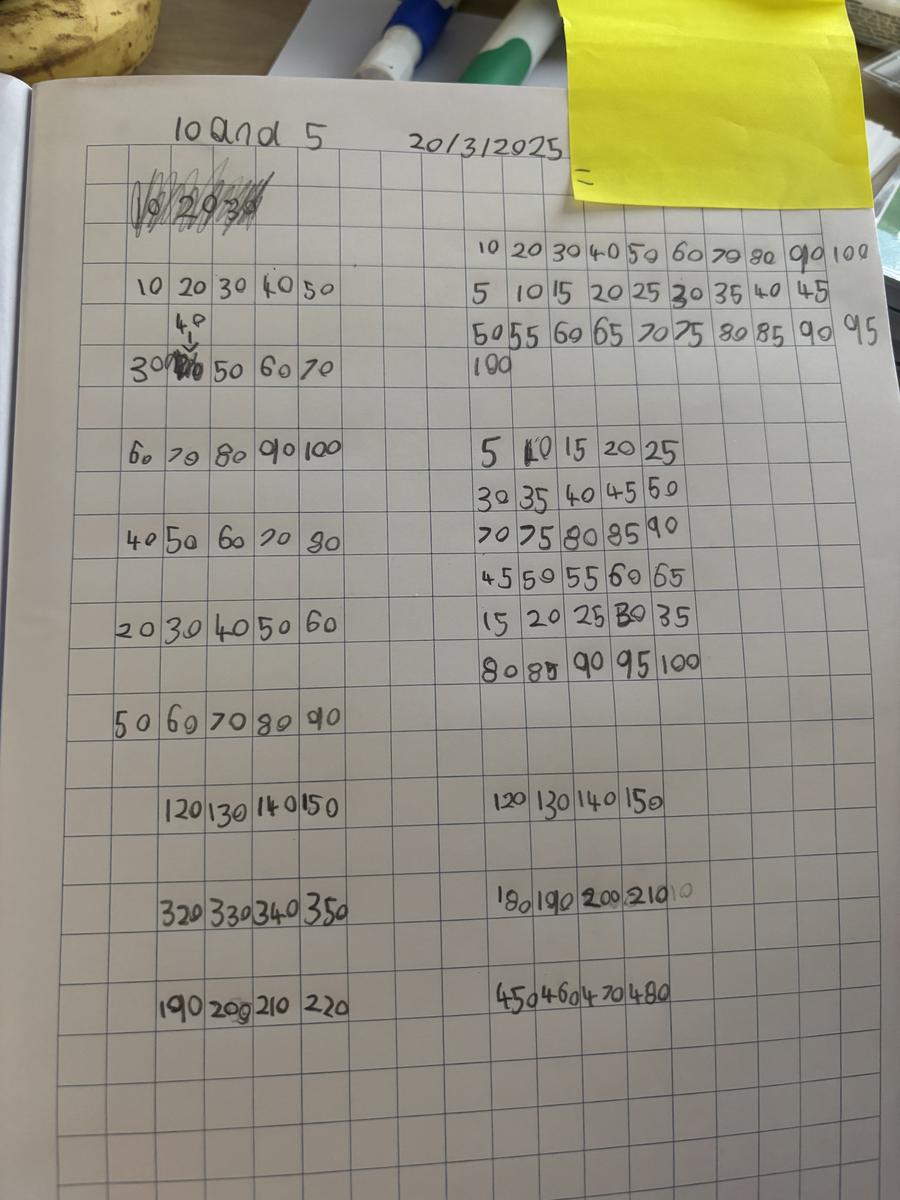 10 and 5 20/3/2025
=
10 20 30
10 20 30 40 50
40
30 50 60 70
60 70 80 90 100
40 50 60 70 80
20 30 40 50 60
50 60 70 80 90
120 130 140 150
320 330 340 350
190 200 210 220
10 20 30 40 50 60 70 80 90 100
5 10 15 20 25 30 35 40 45
50 55 60 65 70 75 80 85 90 95
100
5 10 15 20 25
30 35 40 45 50
70 75 80 85 90
45 50 55 60 65
15 20 25 30 35
80 85 90 95 100
120 130 140 150
180 190 200 210 10
450 460 470 480